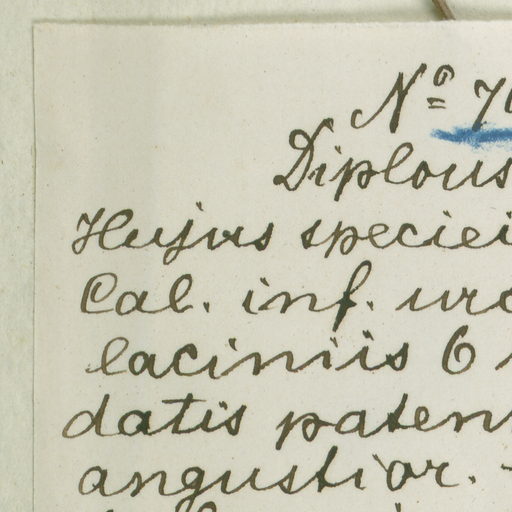 Nº 7
Diplous
Hujus speciei
Cal. inf. urc
laciniis 6
datis patent
angustior.